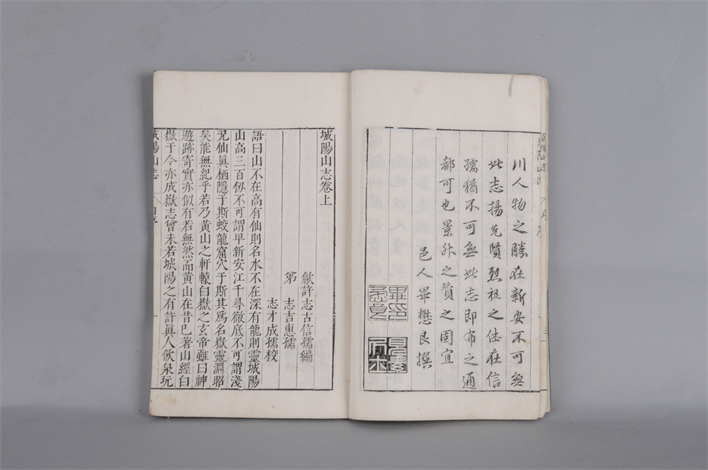 川人物之勝在新安不可無
此志揚先賢烈祖之佳在信
孺稱不可無此志即布之通
都可也景外之賞之固宜
邑人畢懋良撰
城陽山志卷上
歙許志古信孺編
弟 志吉惠孺
志才成孺校
語曰山不在高有仙則名水不在深有龍則靈城陽
山高三百仞不可謂卑新安江千尋徹底不可謂淺
況仙眞栖隱于斯蛟龍窟穴于斯其爲名嶽靈淵昭昭
矣能無紀乎若乃黃山之軒轅白嶽之玄帝雖曰神
遊跡寄實亦似有若無然而黃山在昔已著山經白
嶽于今亦成嶽志曾未若城陽之有許眞人飲泉玩
城陽山志